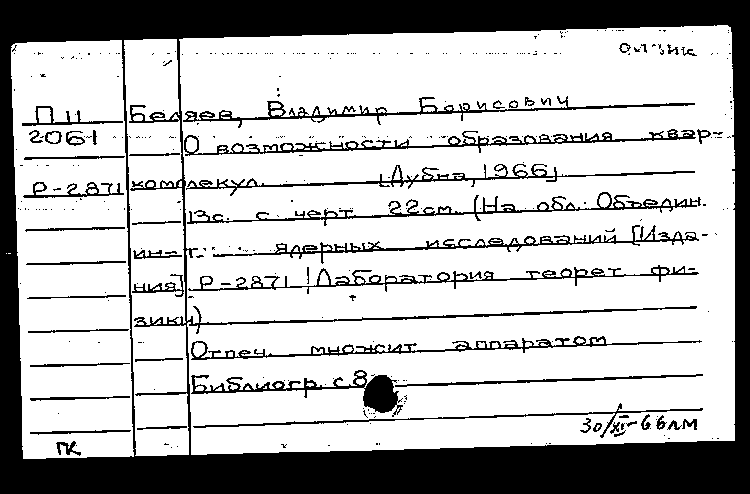 П 11 Беляев, Владимир Борисович
2061 О возможности образования квар-
Р-2871 комолекул. [Дубна, 1966]
13с. с черт. 22см. (На обл.: Объедин.
ин-т. ядерных исследований [Изда-
ния] Р-2871 Лаборатория теорет. фи-
зики)
Отпеч. множит. аппаратом
Библиогр. с.8
30/XI-66
ПК